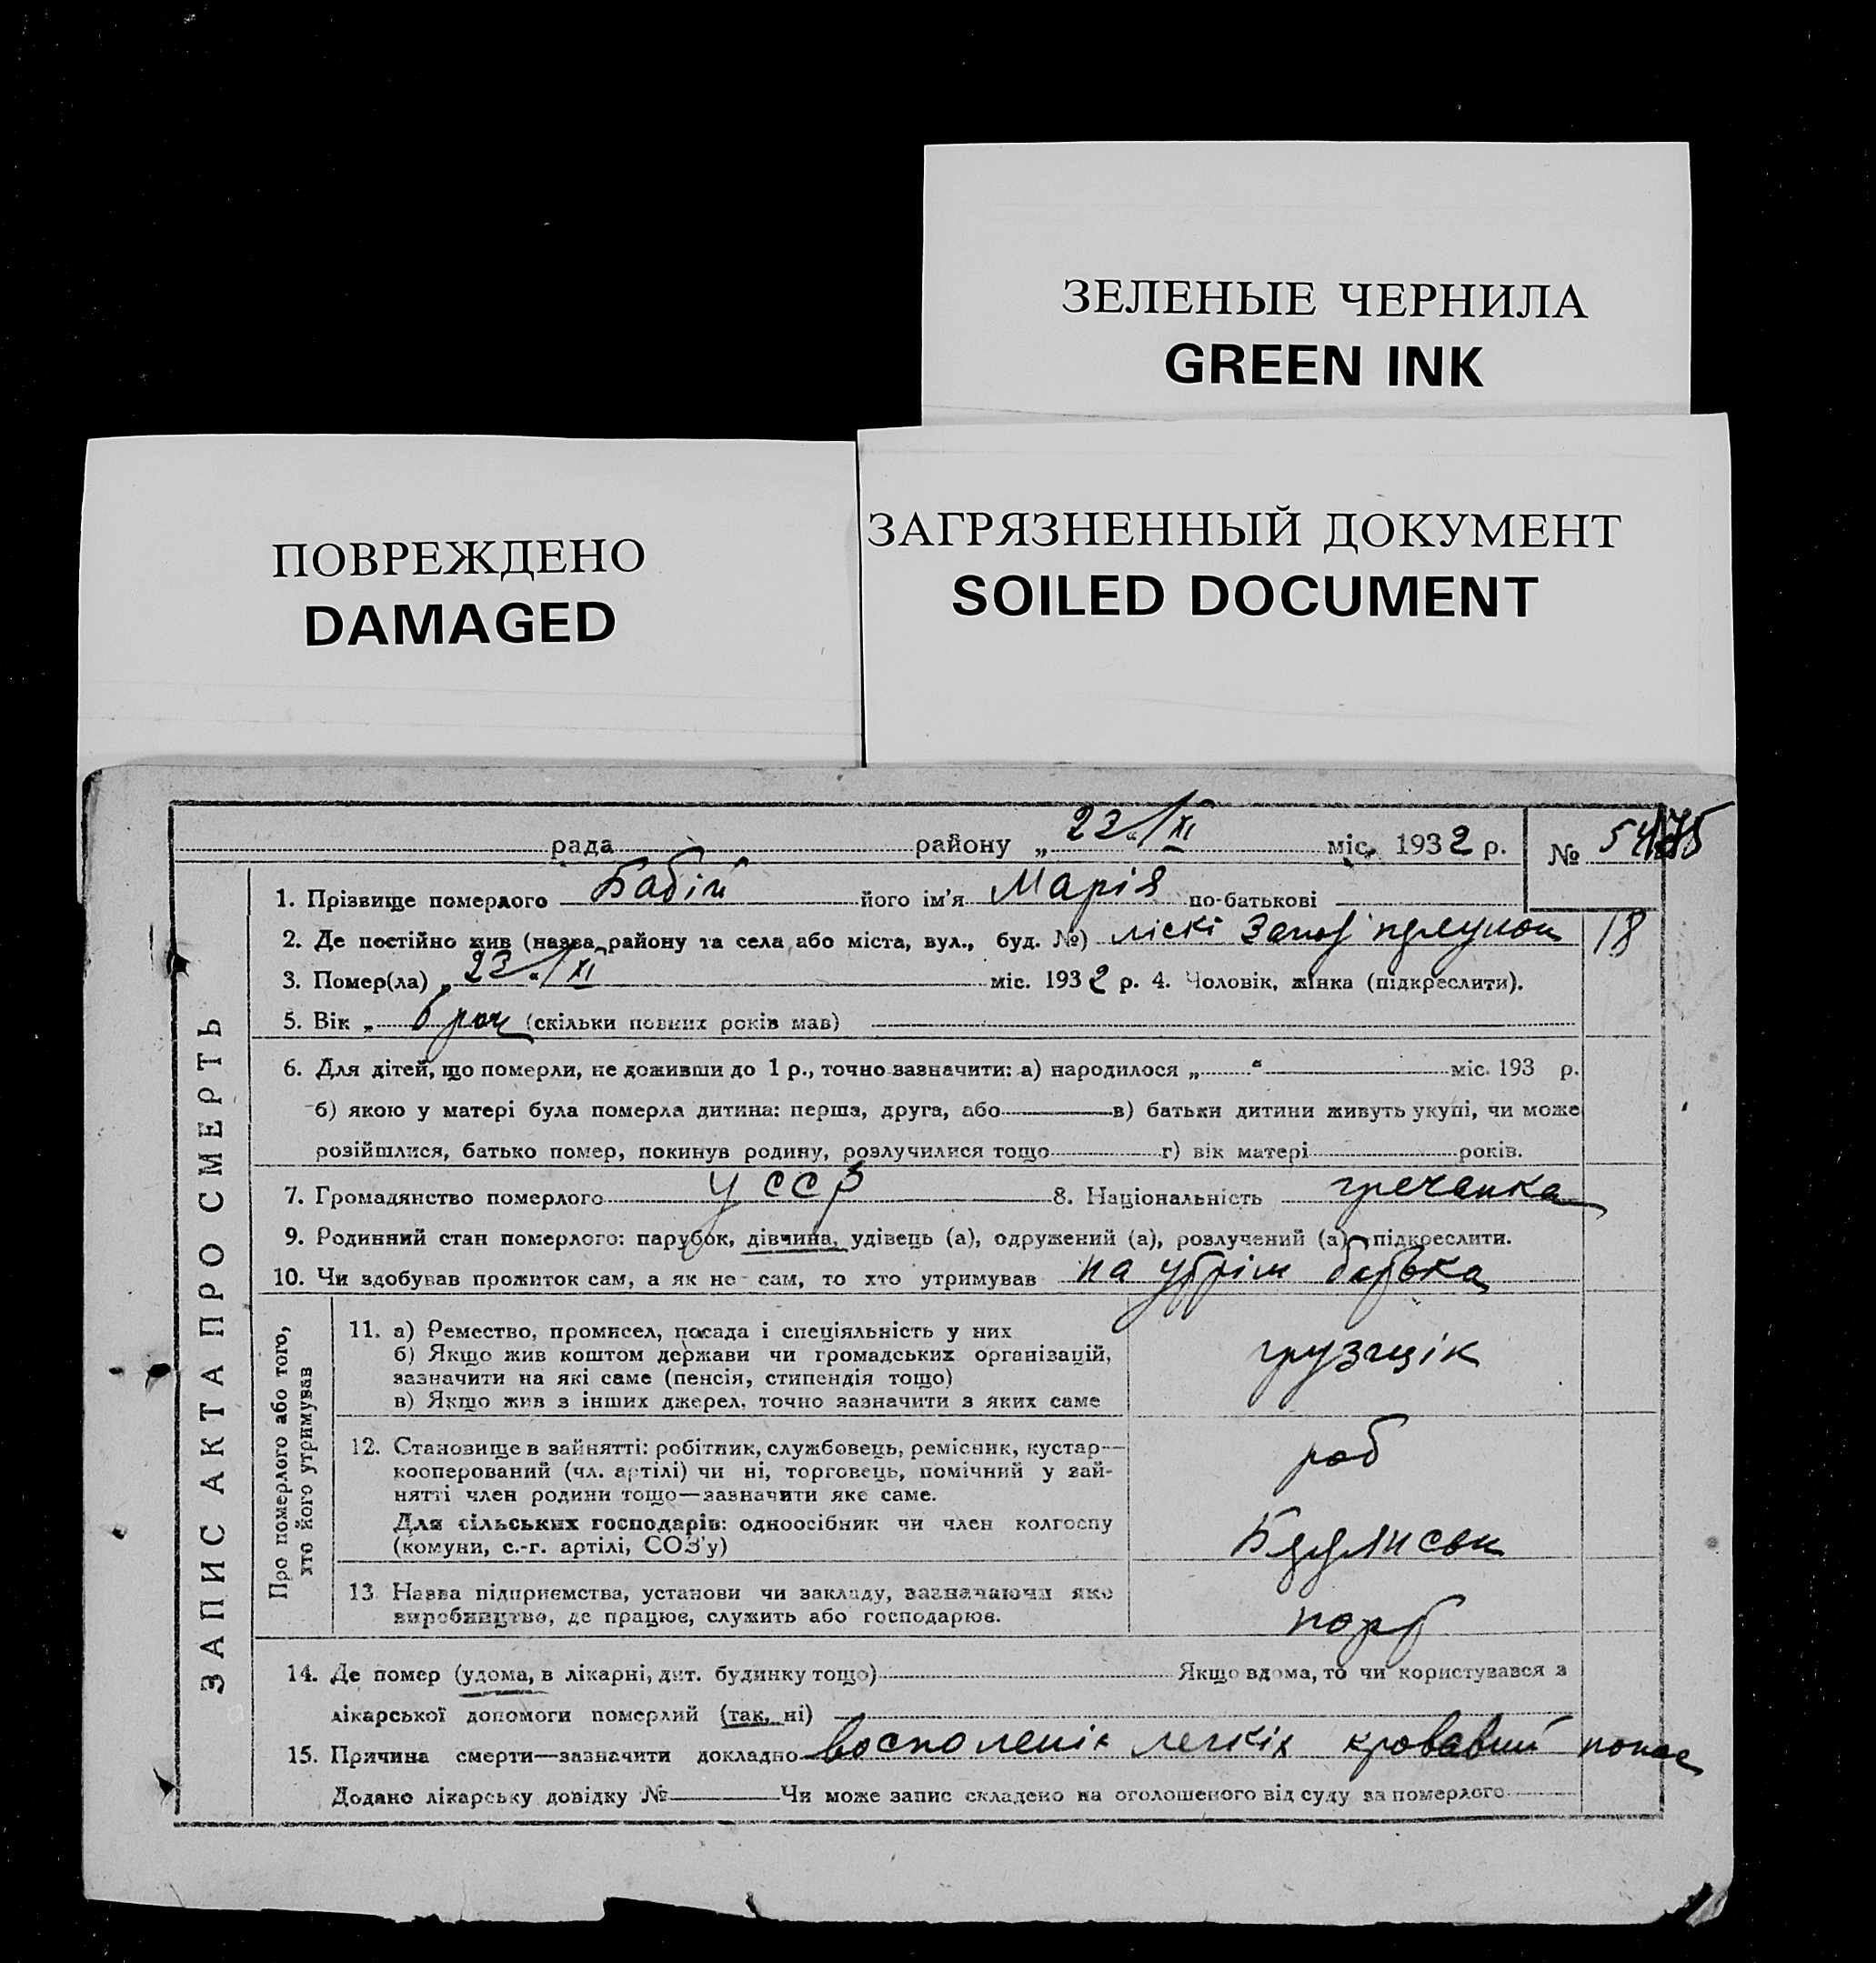 ЗЕЛЕНЫЕ ЧЕРНИЛА
GREEN INK
ПОВРЕЖДЕНО
DAMAGED
ЗАГРЯЗНЕННЫЙ ДОКУМЕНТ
SOILED DOCUMENT
рада району „ 23 “ / XI міс. 1932 р. №
ЗАПИС АКТА ПРО СМЕРТЬ
1. Прізвище померлого Бабій його ім'я Марія по-батькові
2. Де постійно жив (назва району та села або міста, вул., буд. №) ліскі 18
3. Помер(ла) „ 23 “ / XI міс. 1932 р. 4. Чоловік, жінка (підкреслити).
5. Вік „ 6 рок (скільки повних років мав)
6. Для дітей, що померли, не доживши до 1 р., точно зазначити: а) народилося „ “ міс. 193 р.
б) якою у матері була померла дитина: перша, друга, або в) батьки дитини живуть укупі, чи може
розійшлися, батько помер, покинув родину, розлучилися тощо г) вік матері років.
7. Громадянство померлого УССР 8. Національність гречанка
9. Родинний стан померлого: парубок, дівчина, удівець (а), одружений (а), розлучений (а) підкреслити.
10. Чи здобував прожиток сам, а як не сам, то хто утримував на утрім батька
Про померлого або того,
хто його утримував
11. а) Ремество, промисел, посада і спеціяльність у них
б) Якщо жив коштом держави чи громадських організацій,
зазначити на які саме (пенсія, стипендія тощо)
в) Якщо жив з інших джерел, точно зазначити з яких саме
грузщік
12. Становище в зайнятті: робітник, службовець, ремісник, кустар—
кооперований (чл. артілі) чи ні, торговець, помічний у зай-
нятті член родини тощо—зазначити яке саме.
Для сільських господарів: одноосібник чи член колгоспу
(комуни, с.-г. артілі, СОЗ'у)
роб
13. Назва підприємства, установи чи закладу, зазначаючи яке
виробництво, де працює, служить або господарює.
порт
14. Де помер (удома, в лікарні, дит. будинку тощо) Якщо вдома, то чи користувався з
лікарської допомоги померлий (так, ні)
15. Причина смерти—зазначити докладно восполеніє легкіх кровавий понос
Додано лікарську довідку № Чи може запис складено на оголошеного від суду за померлого